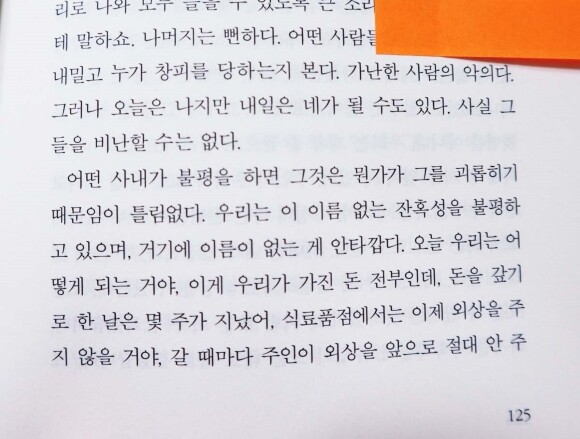 리로 나와 모두 들을 수 있도록 큰
테 말하죠. 나머지는 뻔하다. 어떤 사람들
내밀고 누가 창피를 당하는지 본다. 가난한 사람의 악의다.
그러나 오늘은 나지만 내일은 네가 될 수도 있다. 사실 그
들을 비난할 수는 없다.
어떤 사내가 불평을 하면 그것은 뭔가가 그를 괴롭히기
때문임이 틀림없다. 우리는 이 이름 없는 잔혹성을 불평하
고 있으며, 거기에 이름이 없는 게 안타깝다. 오늘 우리는 어
떻게 되는 거야, 이게 우리가 가진 돈 전부인데, 돈을 갚기
로 한 날은 몇 주가 지났어, 식료품점에서는 이제 외상을 주
지 않을 거야, 갈 때마다 주인이 외상을 앞으로 절대 안 주
125